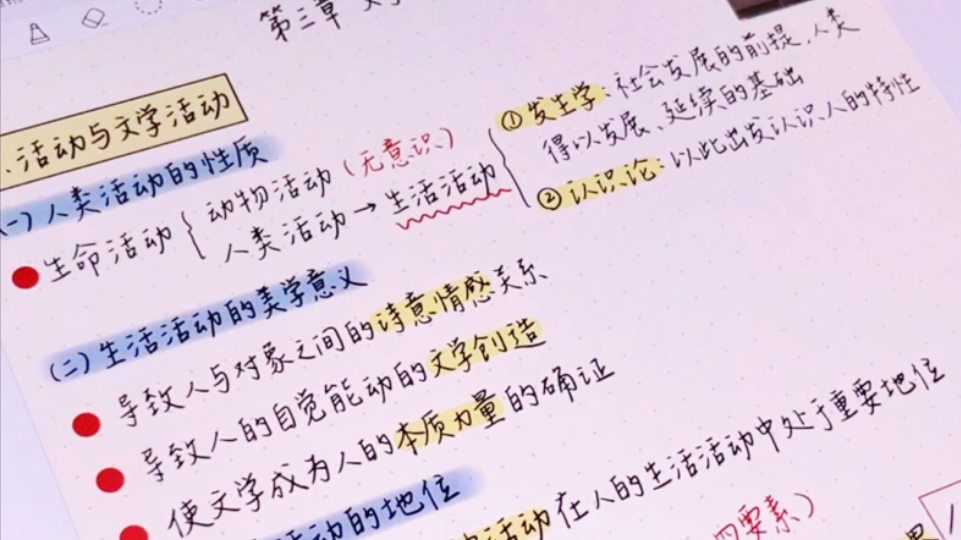 第三章
活动与文学活动
(一)人类活动的性质
生命活动{动物活动(无意识)
人类活动→生活活动
①发生学:社会发展的前提,人类
得以发展、延续的基础
②认识论:以此出发认识人的特性
(二)生活活动的美学意义
导致人与对象之间的诗意情感关系
导致人的自觉能动的文学创造
使文学成为人的本质力量的确证
活动的地位
活动在人的生活活动中处于重要地位
四要素)